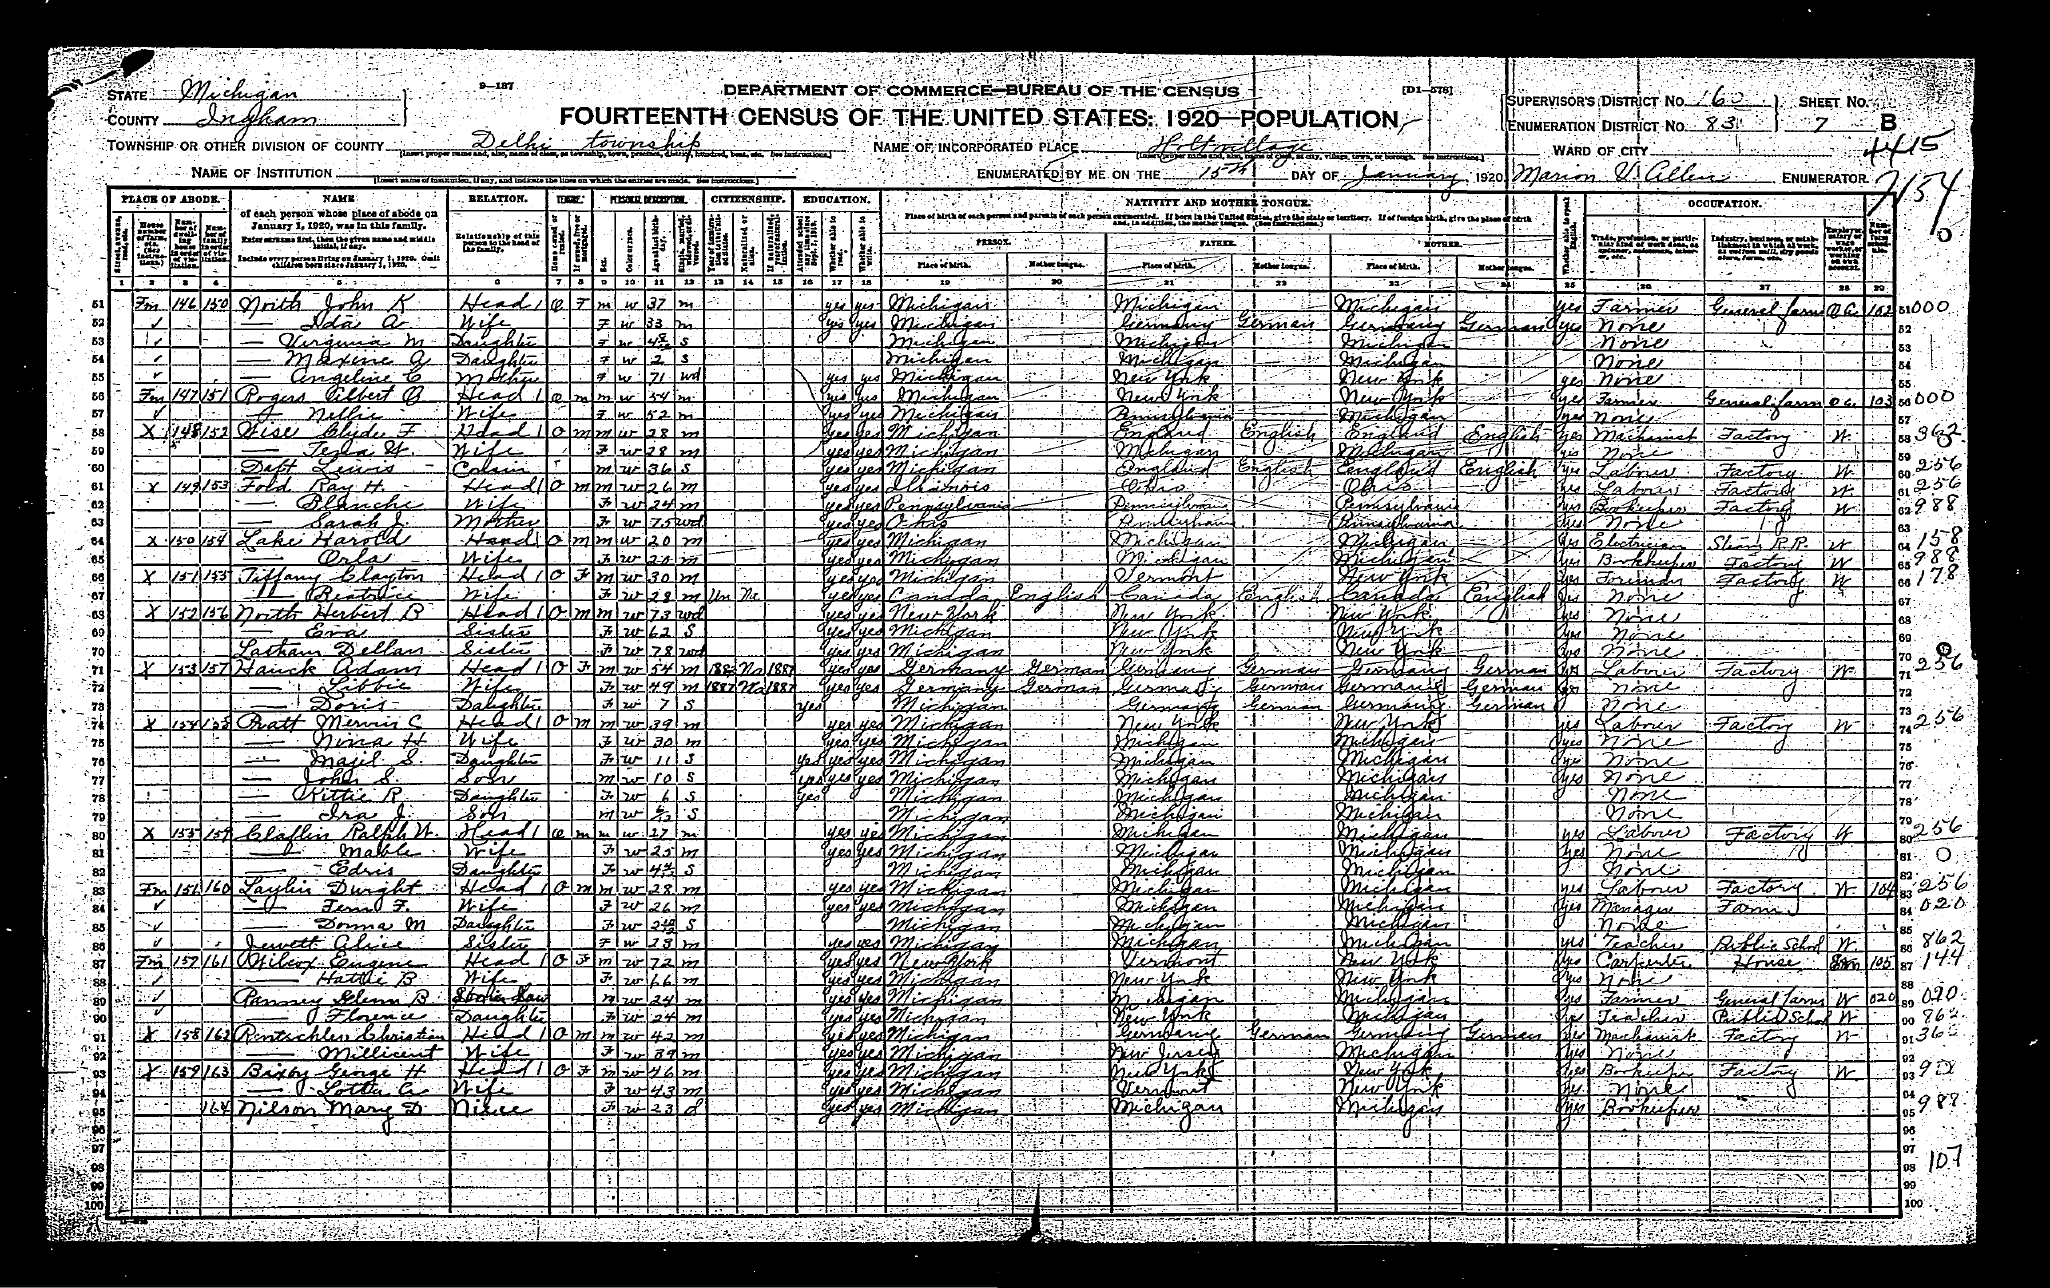 9—187
DEPARTMENT OF COMMERCE—BUREAU OF THE CENSUS
[D1—578]
STATE Michigan
COUNTY Ingham
FOURTEENTH CENSUS OF THE UNITED STATES: 1920—POPULATION
SUPERVISOR'S DISTRICT No. SHEET No.
ENUMERATION DISTRICT No. 83 7 B
4415
TOWNSHIP OR OTHER DIVISION OF COUNTY Delhi township NAME OF INCORPORATED PLACE Holt village WARD OF CITY
NAME OF INSTITUTION ENUMERATED BY ME ON THE 15th DAY OF January, 1920. Marion V. Allen ENUMERATOR
PLACE OF ABODE. NAME RELATION. PERSONAL DESCRIPTION. CITIZENSHIP. EDUCATION. NATIVITY AND MOTHER TONGUE. OCCUPATION.
of each person whose place of abode on January 1, 1920, was in this family.
PERSON. FATHER. MOTHER.
Place of birth. Mother tongue. Place of birth. Mother tongue. Place of birth. Mother tongue.
51 Fm 146 150 North John K Head 1 O F m w 37 m yes yes Michigan Michigan Michigan yes Farmer General farm O.A. 102 000
52 — Ida A Wife F w 33 m yes yes Michigan Germany German Germany German yes None
53 — Virginia M Daughter F w S Michigan Michigan Michigan None
54 — Maxine A Daughter F w 2 S Michigan Michigan Michigan None
55 — Angeline C Mother F w 71 wd yes yes Michigan New York New York yes None
56 Fm 147 151 Rogers Head 1 O m m w 54 m yes yes Michigan New York New York yes Farmer General farm O.A. 103 000
57 — Nellie Wife F w 52 m yes yes Michigan Pennsylvania Michigan yes None
58 X 148 152 Wise Clyde F. Head 1 O m m w 28 m yes yes Michigan England English England English yes Machinist Factory W
59 — Wife F w 28 m yes yes Michigan Michigan Michigan yes None
60 Daft Lewis Cousin m w 36 S yes yes Michigan England English England English yes Laborer Factory W 256
61 X 149 153 Fold Ray H. Head 1 O m m w 26 m yes yes Illinois Ohio Ohio yes Laborer Factory W 256
62 — Blanche Wife F w 24 m yes yes Pennsylvania Pennsylvania Pennsylvania yes Bookeeper Factory W 988
63 — Sarah J. Mother F w 75 wd yes yes Ohio Pennsylvania yes None
64 X 150 154 Lake Harold Head 1 O m m w 20 m yes yes Michigan Michigan Michigan yes Electrician Steam R.R. W 158
65 — Orla Wife F w 20 m yes yes Michigan Michigan Michigan yes Bookeeper Factory W 988
66 X 151 155 Tiffany Clayton Head 1 O F m w 30 m yes yes Michigan Vermont New York yes Foreman Factory W 178
67 — Beatrice Wife F w 28 m Un Na yes yes Canada English Canada English Canada English yes None
68 X 152 156 North Herbert B Head 1 O m m w 73 wd yes yes New York New York New York yes None
69 — Eva Sister F w 62 S yes yes Michigan New York New York yes None
70 Latham Dellan Sister F w 78 wd yes yes Michigan New York New York yes None
71 X 153 157 Hauck Adam Head 1 O F m w 54 m Na 1887 yes yes Germany German Germany German Germany German yes Laborer Factory W 256
72 — Libbie Wife F w 49 m 1887 Na 1887 yes yes Germany German Germany German Germany German yes None
73 — Doris Daughter F w 7 S yes Michigan Germany German Germany German None
74 X 154 158 Pratt Mervin C Head 1 O m m w 39 m yes yes Michigan New York New York yes Laborer Factory W 256
75 — Nina H Wife F w 30 m yes yes Michigan Michigan Michigan yes None
76 — Masil S. Daughter F w 11 S yes yes yes Michigan Michigan Michigan yes None
77 — John S. Son m w 10 S yes yes yes Michigan Michigan Michigan yes None
78 — Kittie R Daughter F w 6 S yes Michigan Michigan Michigan None
79 — Ira J. Son m w S Michigan Michigan Michigan None
80 X 155 159 Claflin Ralph W. Head 1 O m m w 27 m yes yes Michigan Michigan Michigan yes Laborer Factory W 256
81 — Mable Wife F w 25 m yes yes Michigan Michigan Michigan yes None
82 — Edris Daughter F w S Michigan Michigan Michigan None
83 Fm 156 160 Laylin Dwight Head 1 O m m w 28 m yes yes Michigan Michigan Michigan yes Laborer Factory W 104 256
84 — Fern F. Wife F w 26 m yes yes Michigan Michigan Michigan yes Manager Farm 020
85 — Donna M Daughter F w S Michigan Michigan Michigan None
86 Jewett Alice Sister F w 23 m yes yes Michigan Michigan Michigan yes Teacher Public School W 862
87 Fm 157 161 Wilcox Eugene Head 1 O F m w 72 m yes yes New York Vermont New York yes Carpenter House 105 144
88 — Hattie B Wife F w 66 m yes yes Michigan New York New York yes None
89 Panney Glenn B m w 24 m yes yes Michigan Michigan Michigan yes Farmer General farm W 020
90 — Florence Daughter F w 24 m yes yes Michigan New York Michigan yes Teacher Public School W 862
91 X 158 162 Rentschler Christian Head 1 O m m w 42 m yes yes Michigan Germany German Germany German yes Machinist Factory W
92 — Millicent Wife F w 39 m yes yes Michigan New Jersey Michigan yes None
93 X 159 163 Bixby George H Head 1 O F m w 46 m yes yes Michigan New York New York yes Bookeeper Factory W
94 — Lotta A Wife F w 43 m yes yes Michigan Vermont New York yes None
95 164 Nilson Mary D Niece F w 23 d yes yes Michigan Michigan Michigan yes Bookeeper
96
97
98 107
99
100